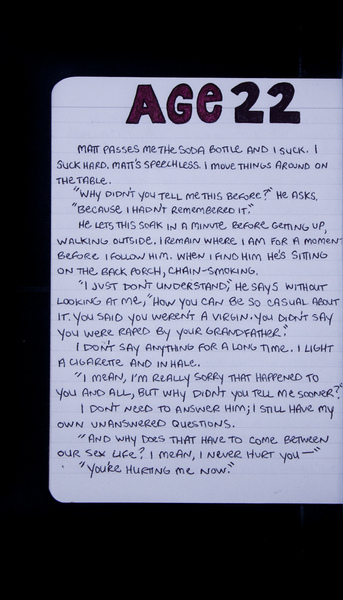 AGE 22
MATT PASSES ME THE SODA BOTTLE AND I SUCK. I
SUCK HARD. MATT'S SPEECHLESS. I MOVE THINGS AROUND ON
THE TABLE..
"WHY DIDN'T YOU TELL ME THIS BEFORE?" HE ASKS.
"BECAUSE I HADN'T REMEMBERED IT."
HE LETS THIS SOAK IN A MINUTE BEFORE GETTING UP,
WALKING OUTSIDE. I REMAIN WHERE I AM FOR A MOMENT
BEFORE I FOLLOW HIM. WHEN I FIND HIM HE'S SITTING
ON THE BACK PORCH, CHAIN-SMOKING.
"I JUST DON'T UNDERSTAND," HE SAYS WITHOUT
LOOKING AT ME, "HOW YOU CAN BE SO CASUAL ABOUT
IT. YOU SAID YOU WEREN'T A VIRGIN. YOU DIDN'T SAY
YOU WERE RAPED BY YOUR GRANDFATHER."
I DON'T SAY ANYTHING FOR A LONG TIME. I LIGHT
A CIGARETTE AND INHALE.
"I MEAN, I'M REALLY SORRY THAT HAPPENED TO
YOU AND ALL, BUT WHY DIDN'T YOU TELL ME SOONER?"
I DON'T NEED TO ANSWER HIM; I STILL HAVE MY
OWN UNANSWERED QUESTIONS.
"AND WHY DOES THAT HAVE TO COME BETWEEN
OUR SEX LIFE? I MEAN, I NEVER HURT YOU—"
"YOU'RE HURTING ME NOW."